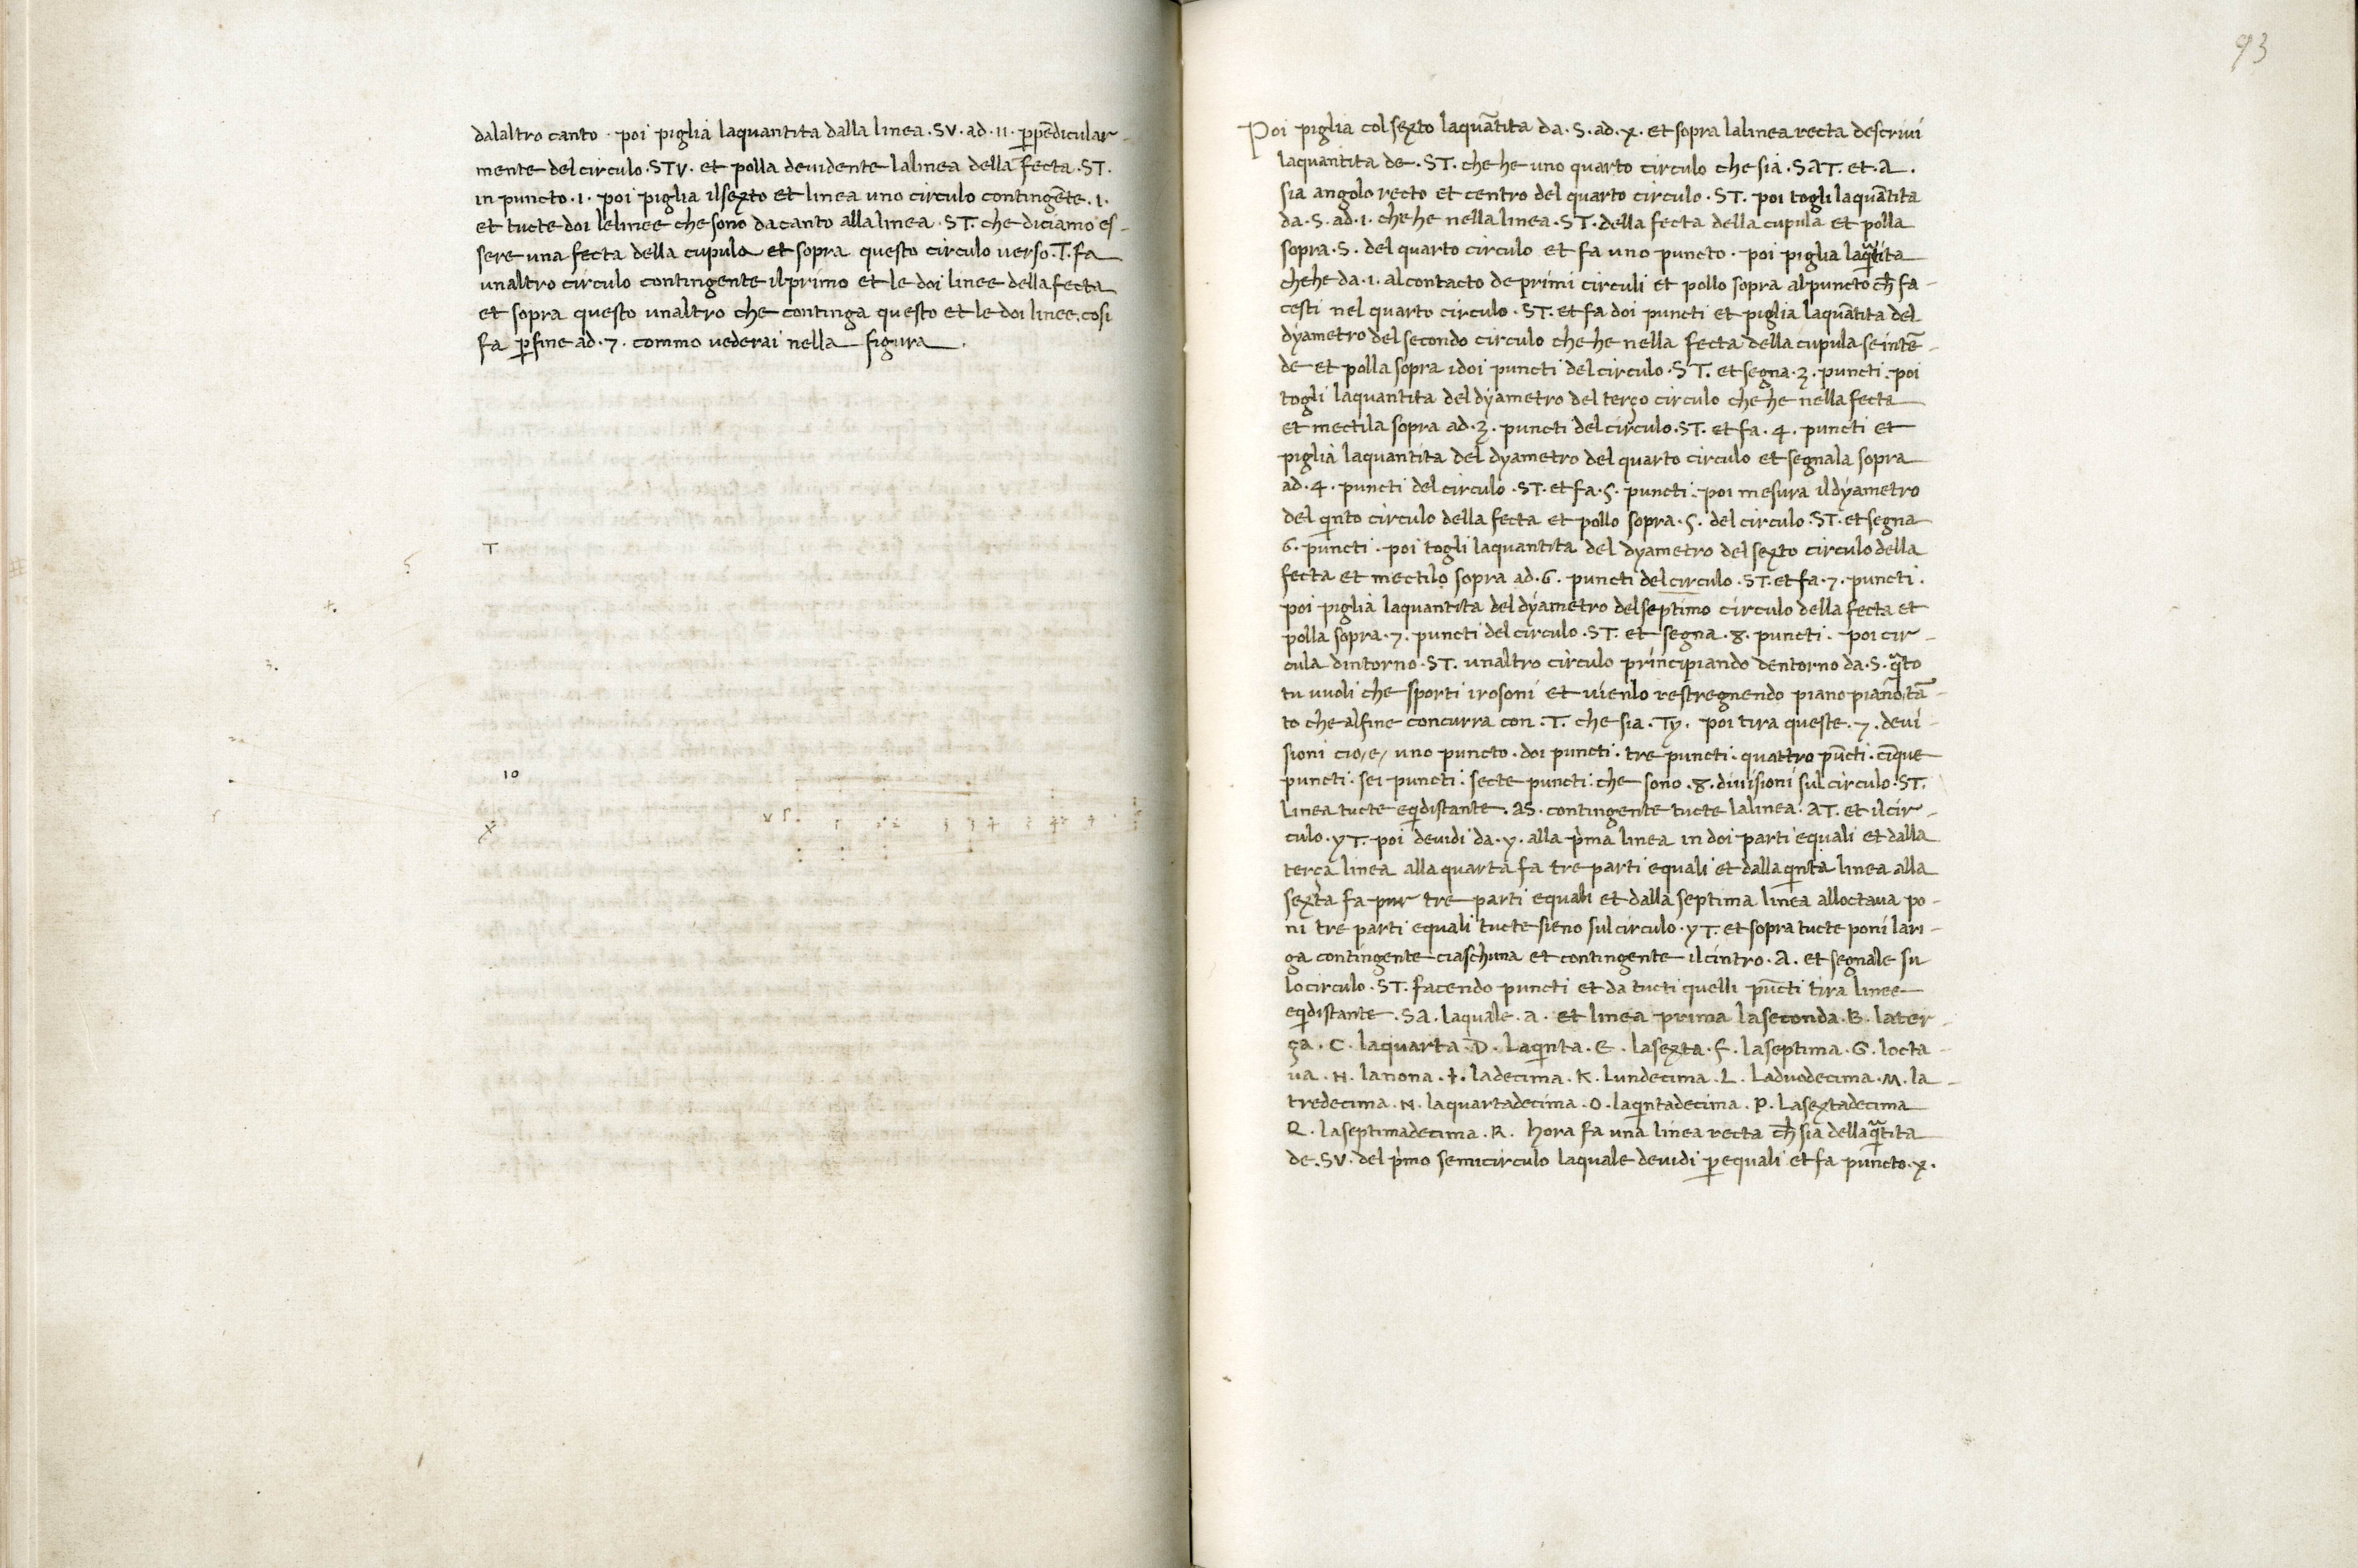 dalaltro canto · poi piglia laquantita dalla linea · SV · ad · 11 · ꝑpēdicular-
mente del circulo · STV · et polla deuidente lalinea della fecta · ST ·
in puncto · 1 · poi piglia ilsexto et linea uno circulo contingēte · 1 ·
et tucte doi lelinee che sono dacanto alla linea · ST · che diciamo es-
sere una fecta della cupula et sopra questo circulo uerso · T · fa
unaltro circulo contingente ilprimo et le doi linee della fecta
et sopra questo unaltro che continga questo et le doi linee, cosi
fa ꝑfine ad · 7 · commo uederai nella figura ·
T
5
4.
3.
2
10
X
93
Poi piglia col sexto laquātita da · S · ad · x · et sopra lalinea recta descriui
laquantita de · ST · che he uno quarto circulo che sia · SAT · et · A ·
sia angolo recto et centro del quarto circulo · ST · poi togli laquātita
da · S · ad · 1 · che he nella linea · ST · della fecta della cupula et polla
sopra · S · del quarto circulo et fa uno puncto · poi piglia laqͣtita
chehe da · 1 · alcontacto de primi circuli et pollo sopra alpuncto ch̄ fa-
cesti nel quarto circulo · ST · et fa doi puncti et piglia laquātita del
dyametro del secondo circulo che he nella fecta della cupula se intē-
de et polla sopra idoi puncti del circulo · ST · et segna · 3 · puncti · poi
togli laquantita del dyametro del terço circulo che he nella fecta
et mectila sopra ad · 3 · puncti del circulo · ST · et fa · 4 · puncti et
piglia laquantita del dyametro del quarto circulo et segnala sopra
ad · 4 · puncti del circulo · ST · et fa · 5 · puncti · poi mesura il dyametro
del qinto circulo della fecta et pollo sopra · 5 · del circulo · ST · et segna
6 · puncti · poi togli laquantita del dyametro del sexto circulo della
fecta et mectilo sopra ad · 6 · puncti del circulo · ST · et fa · 7 · puncti ·
poi piglia laquantita del dyametro del septimo circulo della fecta et
polla sopra · 7 · puncti del circulo · ST · et segna · 8 · puncti · poi cir-
cula dintorno · ST · unaltro circulo principiando dentorno da · S · qͣto
tu uuoli che sporti irosoni et uienlo restregnendo piano piano, tā-
to che alfine concurra con · T · che sia · Ty · poi tira queste · 7 · deui-
sioni cio/e/ uno puncto · doi puncti · tre puncti · quattro pūcti · cīque
puncti · sei puncti · secte puncti · che sono · 8 · diuisioni sul circulo · ST ·
linea tucte eqidistante · AS · contingente tucte lalinea · AT · et il cir-
culo · yT · poi deuidi da · y · alla p̄ma linea in doi parti equali et dalla
terça linea alla quarta fa tre parti equali et dalla qinta linea alla
sexta fa pur tre parti equali et dalla septima linea alloctaua po-
ni tre parti equali tucte sieno sul circulo · yT · et sopra tucte poni lari-
ga contingente ciaschuna et contingente il cintro · A · et segnale su
lo circulo · ST · facendo puncti et da tucti quelli pūcti tira linee
eqidistante · SA · laquale · A · et linea prima laseconda · B · later-
ça · C · laquarta · D · Laqinta · E · lasexta · F · laseptima · G · locta-
ua · H · lanona · I · ladecima · K · Lundecima · L · Laduodecima · M · la-
tredecima · N · laquartadecima · O · laqintadecima · P · Lasextadecima
Q · laseptimadecima · R · hora fa una linea recta ch̄ sia della qͣtita
de · SV · del p̄mo semicirculo laquale deuidi ꝑ equali et fa puncto · x ·